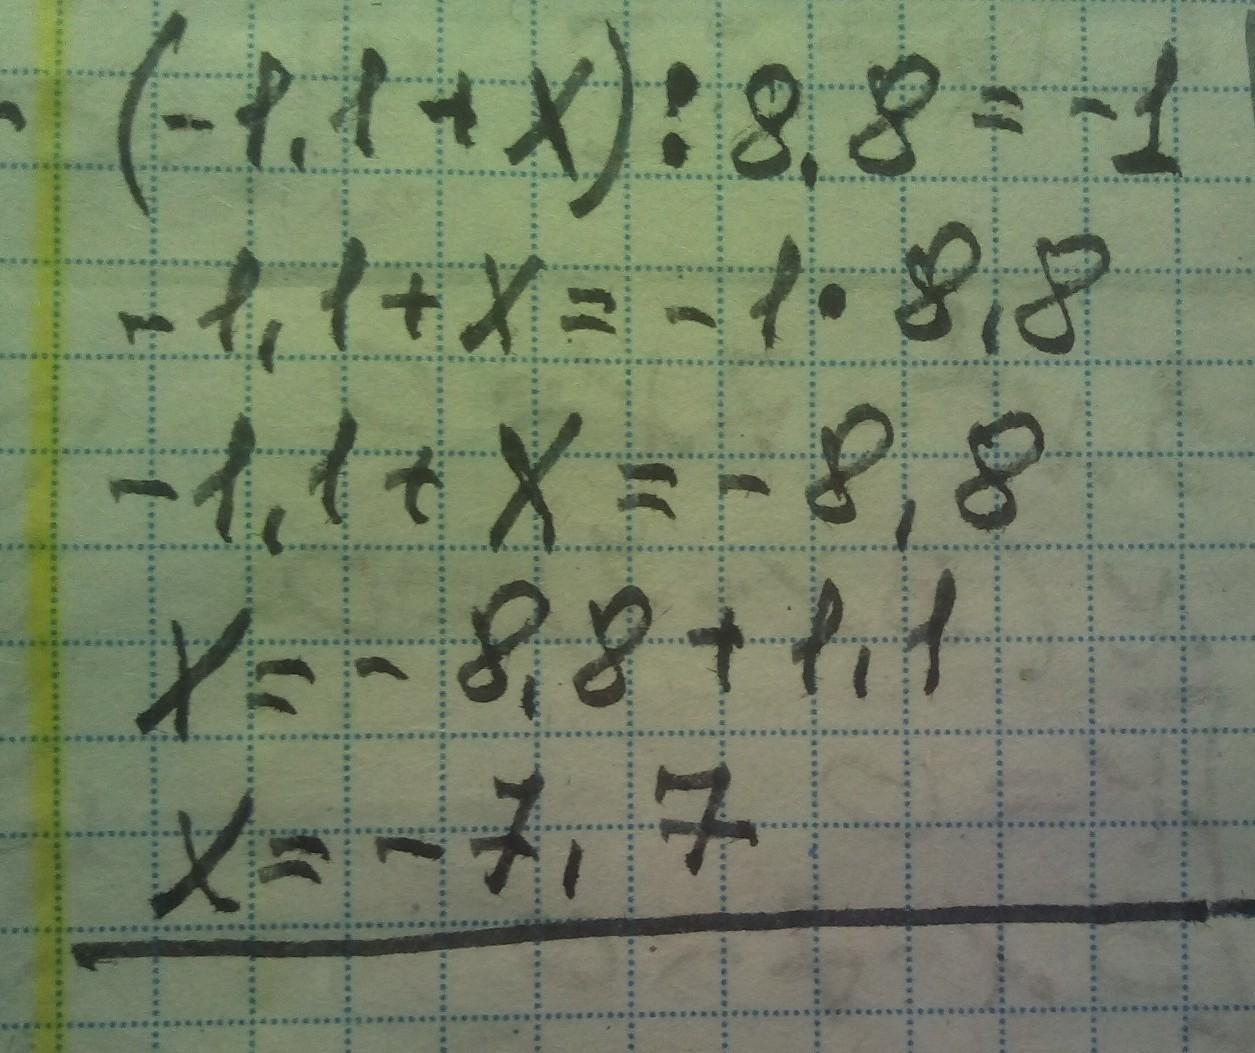 (-1,1+x):8,8=-1
-1,1+x=-1·8,8
-1,1+x=-8,8
x=-8,8+1,1
x=-7,7